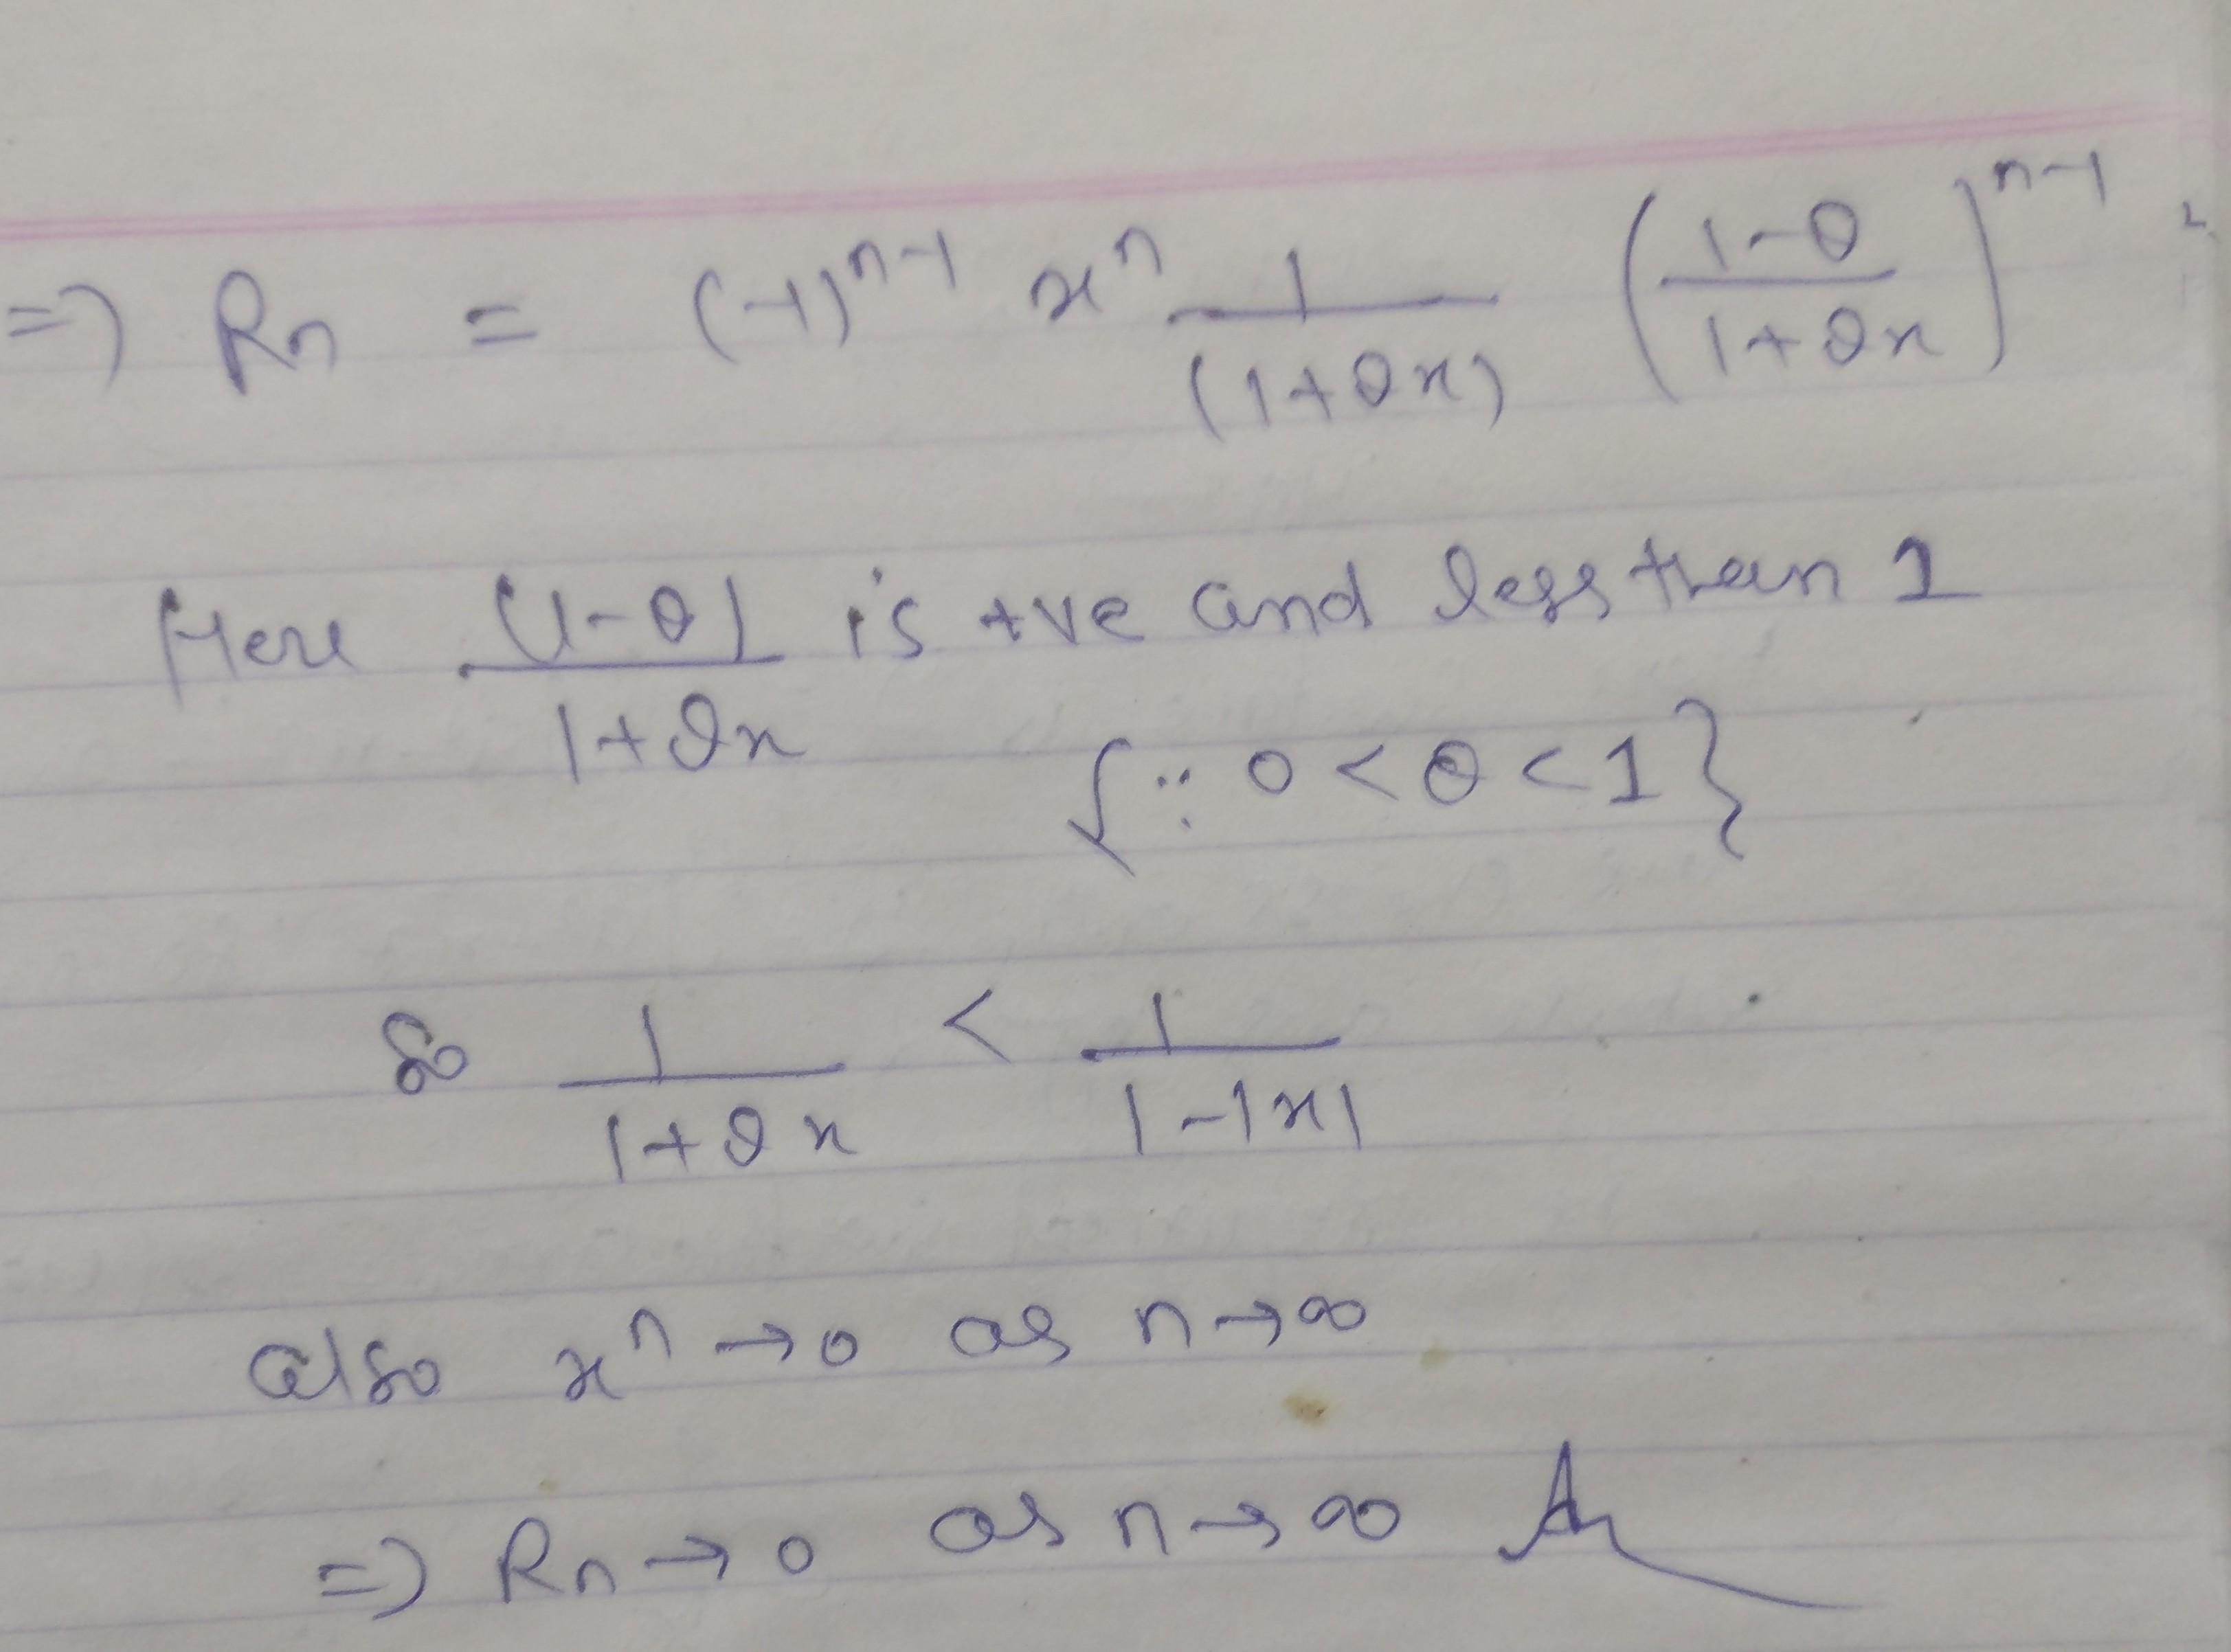 => Rn = (-1)^{n-1} x^n \frac{1}{(1+θx)} \left(\frac{1-θ}{1+θx}\right)^{n-1}
Here \frac{(1-θ)}{1+θx} is +ve and less than 1
{∵ 0<θ<1}
So \frac{1}{1+θx} < \frac{1}{1-|x|}
also x^n → 0 as n → ∞
=> Rn → 0 as n → ∞